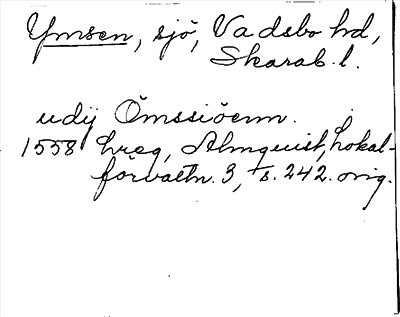 Ymsen, sjö, Vadsbo hd,
Skarab. l.
udij Ömssiöenn.
1558 hreg, Almquist, Lokal-
förvaltn. 3, s. 242. orig.